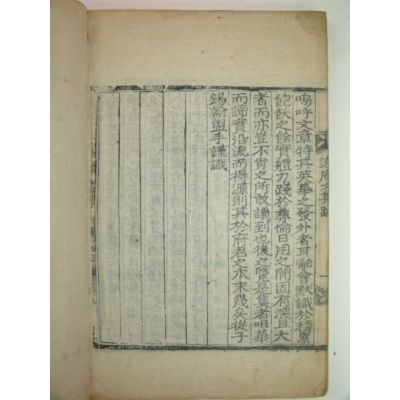 嗚呼文章特其英華之發外者耳融會默識於積累
飽飫之餘實體力踐於彝倫日用之間固有深且大
者而亦豈不肖之所敢議到也後之覽是集者咀華
而諦實沿流而得源則其於府君之本末幾矣從子
錫瀹盥手謹識